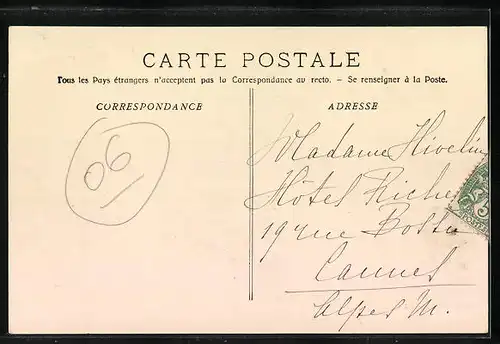 CARTE POSTALE
Tous les Pays étrangers n'acceptent pas la Correspondance au recto. - Se renseigner à la Poste.
CORRESPONDANCE
ADRESSE
06
Madame Hivelin
Hôtel Riche
19 rue
Cannes
Alpes M.